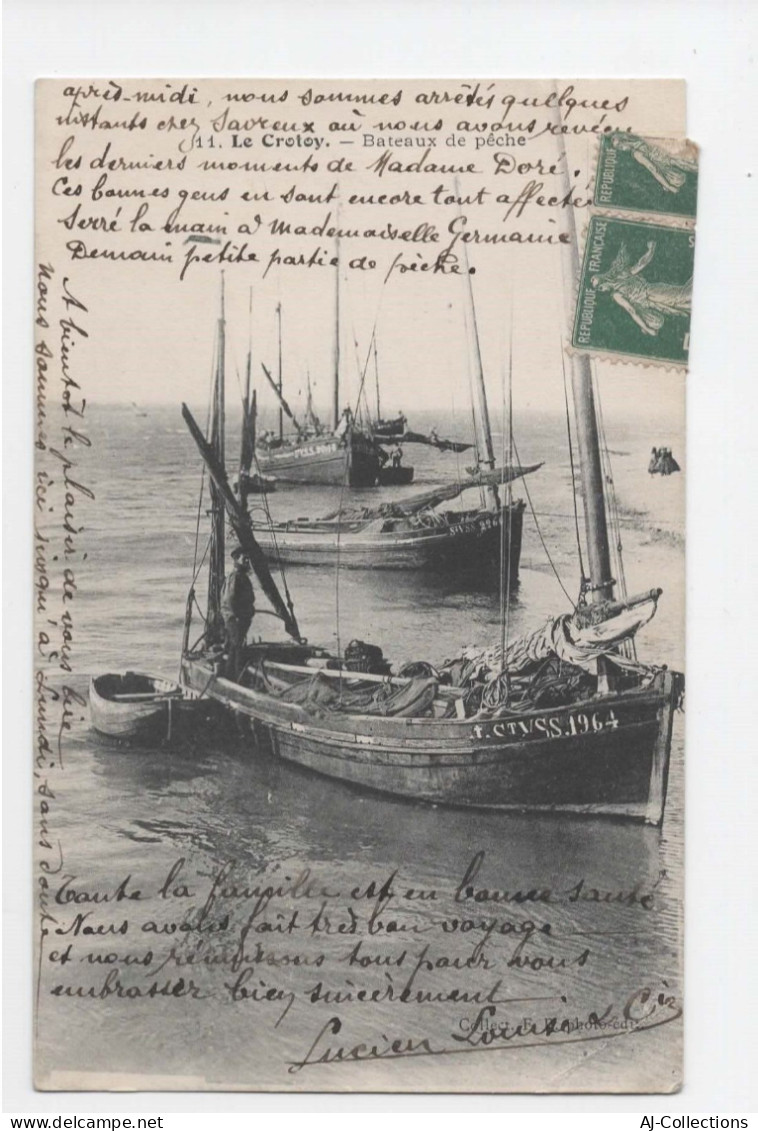 après-midi, nous sommes arrêtés quelques
instants chez Savreux où nous avons revécu
11. Le Crotoy. — Bateaux de pêche
les derniers moments de Madame Doré.
Ces bonnes gens en sont encore tout affectés
Serré la main à Mademoiselle Germaine
Demain petite partie de pêche.
REPUBLIQUE
REPUBLIQUE FRANÇAISE
A bientôt le plaisir de vous lire
Nous sommes ici jusqu'à Lundi, sans doute
St VSS. 1964
Toute la famille est en bonne santé
Nous avons fait très bon voyage
et nous réunissons tous pour vous
embrasser bien sincèrement
Collect. photo-édit.
Lucien Louise & Cie
AJ-Collections